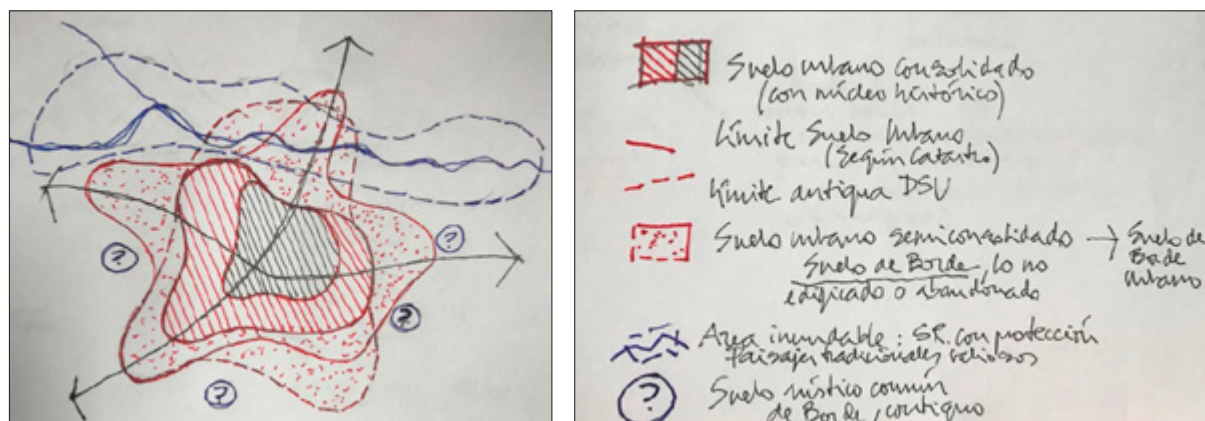 ?
?
?
?
Suelo urbano consolidado
(con núcleo histórico)
Límite Suelo Urbano
(según Catastro)
Límite antigua DSU
Suelo urbano semiconsolidado → Suelo de
Borde
Urbano
Suelo de Borde, lo no
edificado o abandonado
Area inundable: SR. con protección
Paisajes tradicionales valiosos
?
Suelo rústico común
de Borde, contiguo